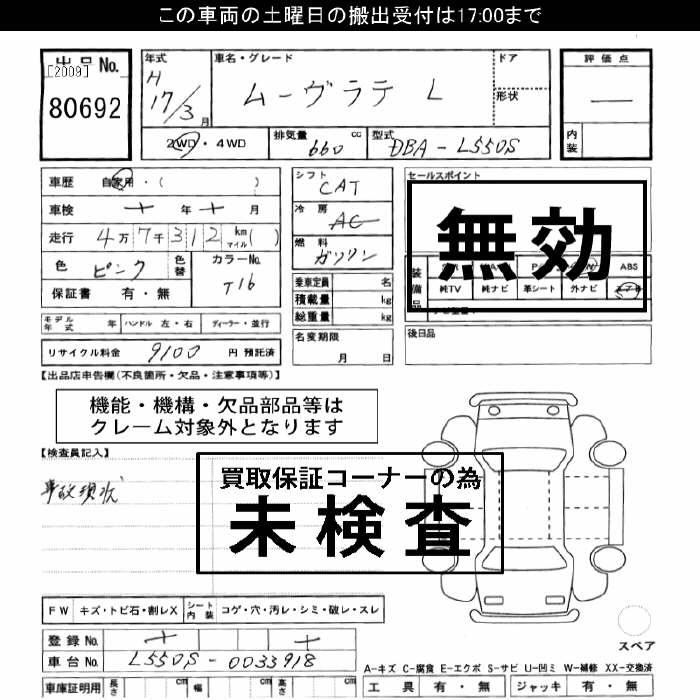 この車両の土曜日の搬出受付は17:00まで
出品 No.
[2009]
80692
年式
H
17/3月
車名・グレード
ムーヴラテ L
ドア
形状
評価点
—
内装
2WD・4WD
排気量 660 cc
型式 DBA-L550S
車歴 自家用・( )
車検 年 月
走行 4万7千312 km マイル( )
色 ピンク
色替
カラーNo. T16
保証書 有・無
シフト CAT
冷房 AC
燃料 ガソリン
乗車定員 名
積載量 kg
総重量 kg
セールスポイント
無効
装備品
ABS
純TV 純ナビ 革シート 外ナビ
モデル年式 年 ハンドル 左・右 ディーラー・並行
リサイクル料金 9100 円 預託済
名変期限
月 日
後日品
【出品店申告欄(不良箇所・欠品・注意事項等)】
機能・機構・欠品部品等は
クレーム対象外となります
【検査員記入】
事故現状
買取保証コーナーの為
未検査
FW キズ・トビ石・割レX シート内装 コゲ・穴・汚レ・シミ・破レ・スレ
登録 No.
車台 No. L550S-0033918
車庫証明用 長さ cm 幅 cm 高さ cm
スペア
A-キズ C-腐食 E-エクボ S-サビ U-凹ミ W-補修 XX-交換済
工具 有・無 ジャッキ 有・無